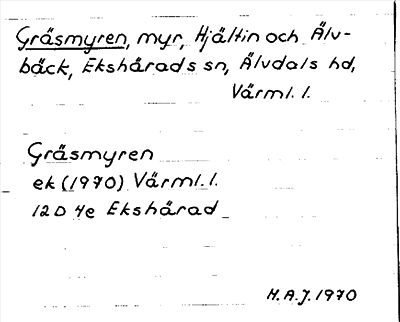 Gräsmyren, myr, Hjältin och Älv-
bäck, Ekshärads sn, Älvdals hd,
Värml. l.
Gräsmyren
ek (1970) Värml. l.
12D 4e Ekshärad
H.A.J. 1970